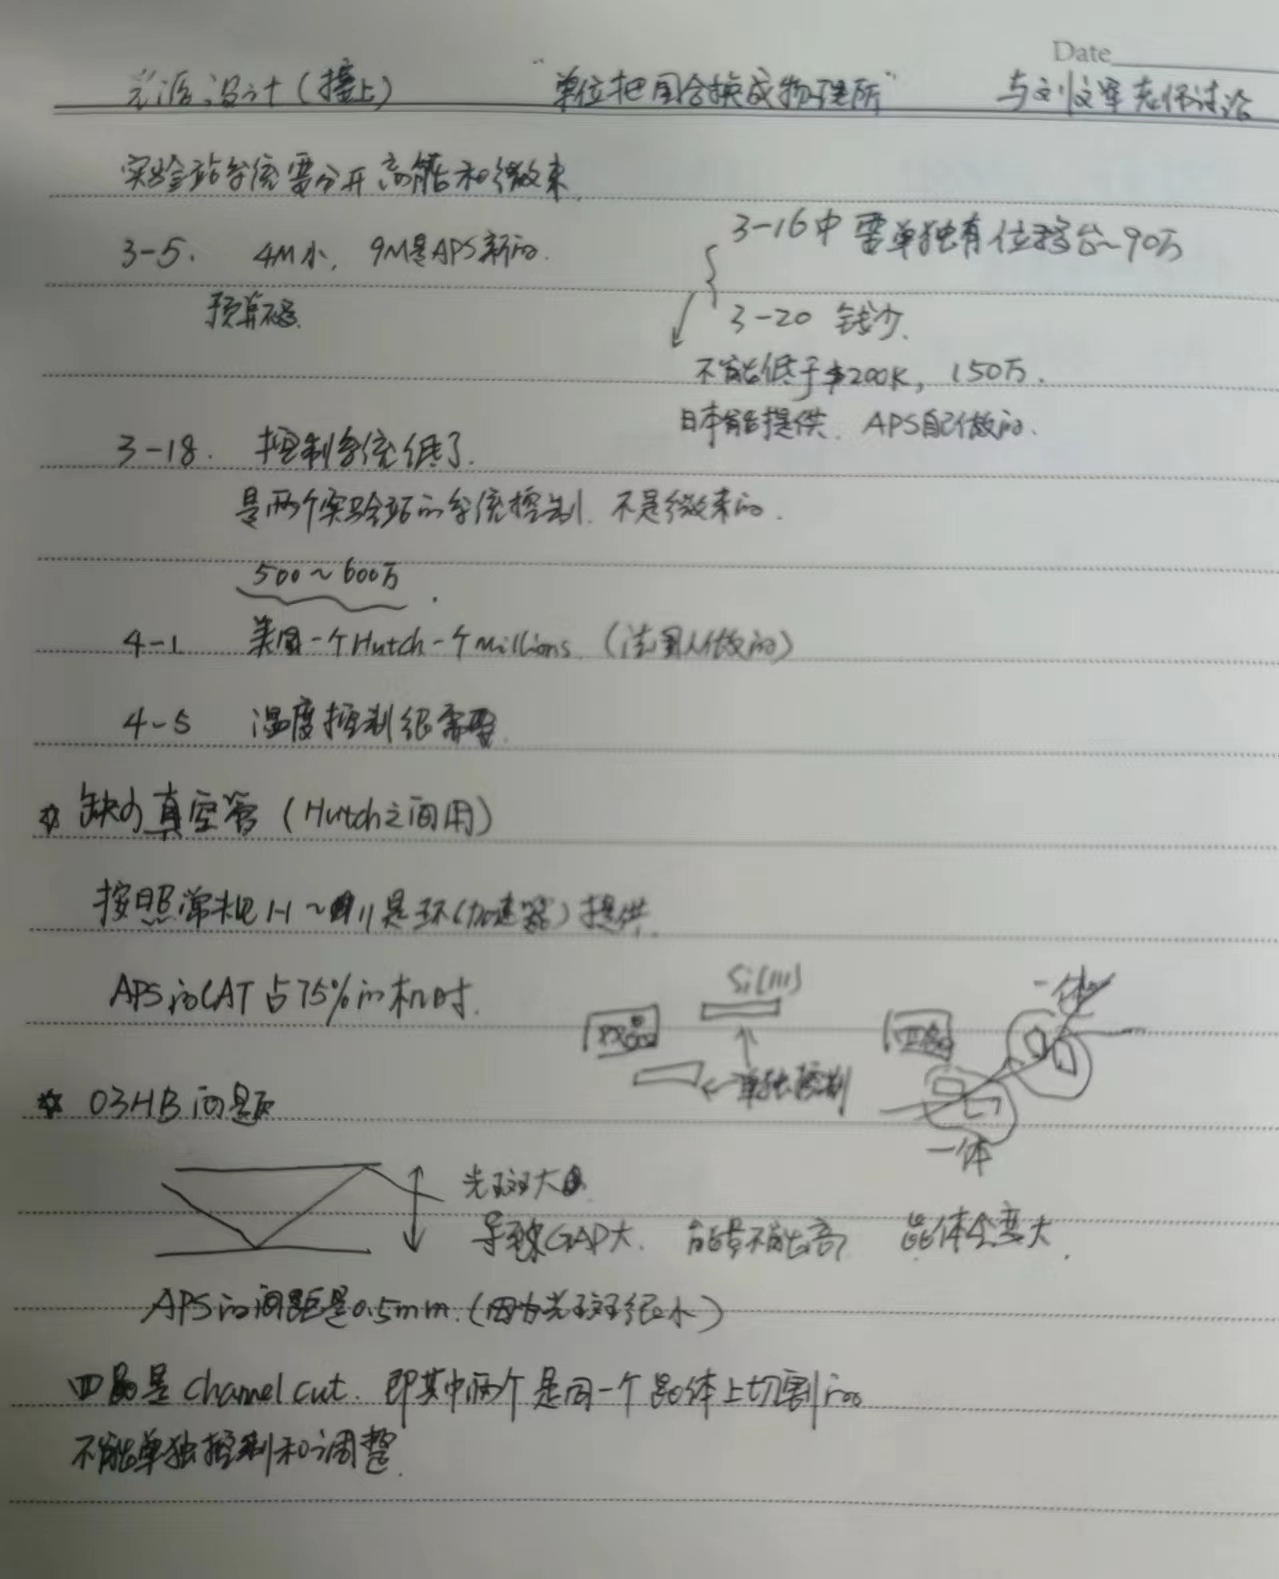 Date
光源设计(接上) "单位把国合换成物理所" 与刘文军老师讨论
实验站系统要分开高能和微束
3-5. 4M小, 9M是APS新的.
预算
3-16中 需单独有位移台~90万
3-20 钱少.
不能低于$200K, 150万.
日本能提供. APS自己做的.
3-18. 控制系统低了.
是两个实验站的系统控制. 不是微束的.
500~600万.
4-1 美国一个Hutch一个millions. (法国人做的)
4-5 温度控制很需要.
☆ 缺少真空管 (Hutch之间用)
按照常规 1-1~ 11是环(加速器)提供.
APS的CAT占75%的机时.
Si(111)
双晶
单独控制
四晶
一体
一体
☆ 03HB问题
光斑大
导致GAP大. 能量不能高 晶体会变大.
APS的间距是0.5mm.(因为光斑很小)
四晶是channel cut. 即其中两个是同一个晶体上切割的
不能单独控制和调整.